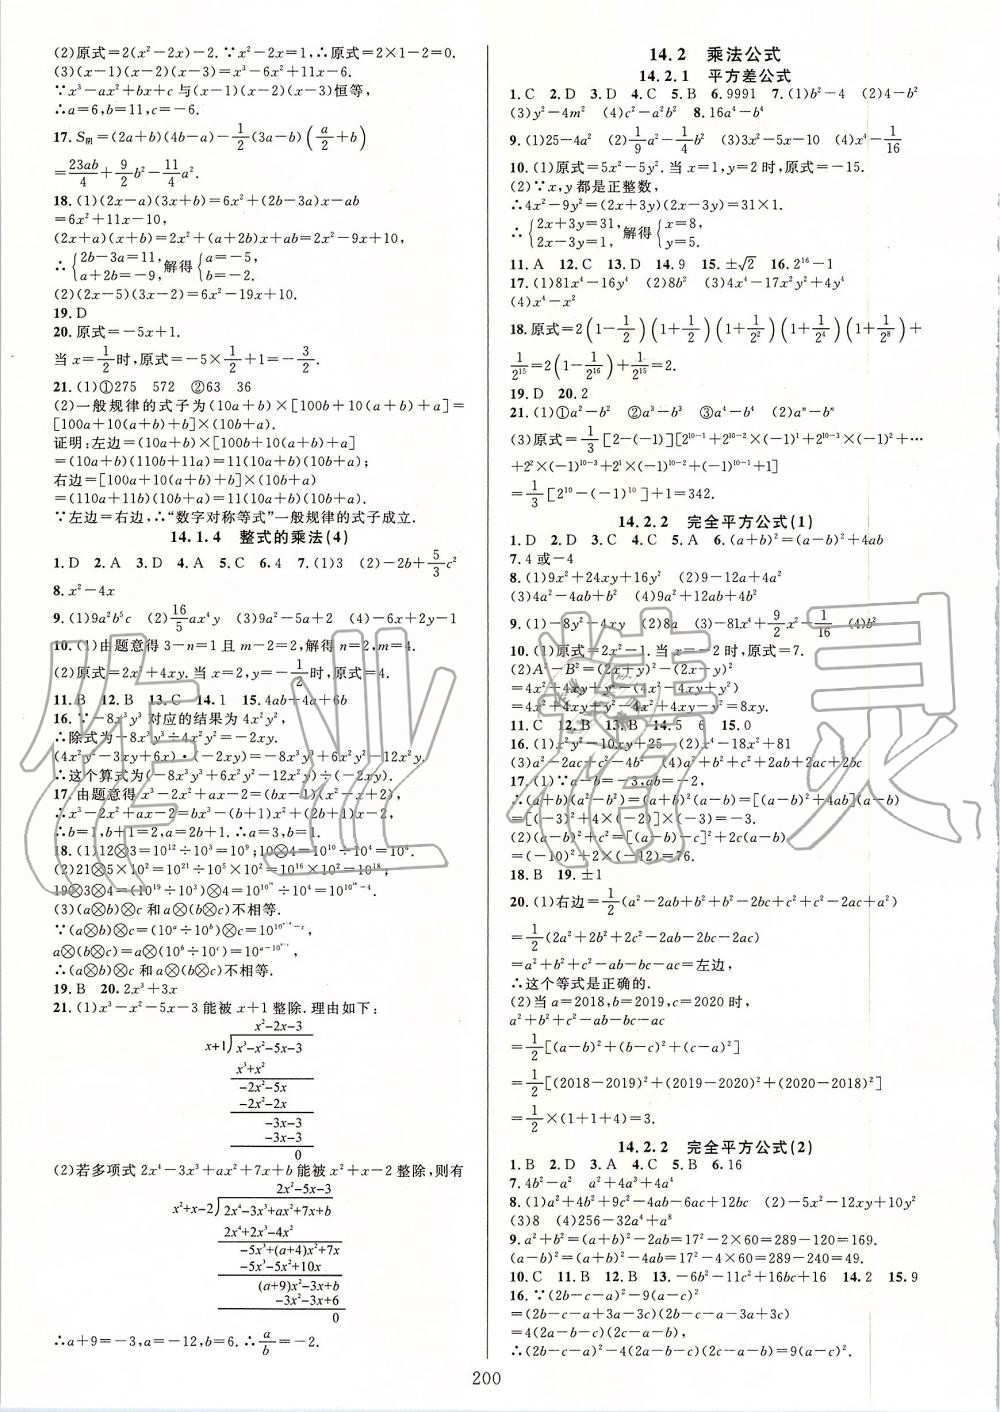 (2)原式=2(x²-2x)-2.∵x²-2x=1,∴原式=2×1-2=0.
(3)(x-1)(x-2)(x-3)=x³-6x²+11x-6.
∵x³-ax²+bx+c与(x-1)(x-2)(x-3)恒等,
∴a=6,b=11,c=-6.
17.S阴=(2a+b)(4b-a)-1/2(3a-b)(a/2+b)
=23ab/4+9/2b²-11/4a².
18.(1)(2x-a)(3x+b)=6x²+(2b-3a)x-ab
=6x²+11x-10,
(2x+a)(x+b)=2x²+(a+2b)x+ab=2x²-9x+10,
∴{2b-3a=11, a+2b=-9, 解得{a=-5, b=-2.
(2)(2x-5)(3x-2)=6x²-19x+10.
19.D
20.原式=-5x+1.
当x=1/2时,原式=-5×1/2+1=-3/2.
21.(1)①275 572 ②63 36
(2)一般规律的式子为(10a+b)×[100b+10(a+b)+a]=
[100a+10(a+b)+b]×(10b+a).
证明:左边=(10a+b)×[100b+10(a+b)+a]
=(10a+b)(110b+11a)=11(10a+b)(10b+a);
右边=[100a+10(a+b)+b]×(10b+a)
=(110a+11b)(10b+a)=11(10a+b)(10b+a).
∵左边=右边,∴“数字对称等式”一般规律的式子成立.
14.1.4 整式的乘法(4)
1.D 2.A 3.D 4.A 5.C 6.4 7.(1)3 (2)-2b+5/3c²
8.x²-4x
9.(1)9a²b⁵c (2)16/5ax⁴y (3)9a²-5a+2 (4)-6x+2y-1
10.(1)由题意得3-n=1且m-2=2,解得n=2,m=4.
(2)原式=2x²+4xy.当x=-2,y=-1/2时,原式=4.
11.B 12.B 13.C 14.1 15.4ab+4a+6b
16.∵-8x³y³对应的结果为4x²y²,
∴除式为-8x³y³÷4x²y²=-2xy.
(4x²y²-3xy+6x)·(-2xy)=-8x³y³+6x²y²-12x²y,
∴这个算式为(-8x³y³+6x²y²-12x²y)÷(-2xy).
17.由题意得x³-2x²+ax-2=(bx-1)(x²-x+2),
∴x³-2x²+ax-2=bx³-(b+1)x²+(2b+1)x-2,
∴b=1,b+1=2,a=2b+1.∴a=3,b=1.
18.(1)12⊗3=10¹²÷10³=10⁹;10⊗4=10¹⁰÷10⁴=10⁶.
(2)21⊗5×10²=10²¹÷10⁵×10²=10¹⁶×10²=10¹⁸;
(3)(a⊗b)⊗c和a⊗(b⊗c)不相等.
∴(a⊗b)⊗c和a⊗(b⊗c)不相等.
19.B 20.2x³+3x
21.(1)x³-x²-5x-3能被x+1整除.理由如下:
x²-2x-3
x+1)x³-x²-5x-3
x³+x²
-2x²-5x
-2x²-2x
-3x-3
-3x-3
0
(2)若多项式2x⁴-3x³+ax²+7x+b能被x²+x-2整除,则有
2x²-5x-3
x²+x-2)2x⁴-3x³+ax²+7x+b
2x⁴+2x³-4x²
-5x³+(a+4)x²+7x
-5x³-5x²+10x
(a+9)x²-3x+b
-3x²-3x+6
0
∴a+9=-3,a=-12,b=6.∴a/b=-2.
14.2 乘法公式
14.2.1 平方差公式
1.C 2.D 3.D 4.C 5.B 6.9991 7.(1)b²-4 (2)4-b²
(3)y²-4m² (4)c²-a²b² 8.16a⁴-b⁴
9.(1)25-4a² (2)1/9a²-1/4b² (3)3x²-5x-10 (4)x⁴-1/16
10.(1)原式=5x²-5y².当x=1,y=2时,原式=-15.
(2)∵x,y都是正整数,
∴4x²-9y²=(2x+3y)(2x-3y)=31×1.
∴{2x+3y=31, 2x-3y=1, 解得{x=8, y=5.
11.A 12.C 13.D 14.9 15.±√2 16.2¹⁶-1
17.(1)81x⁴-16y⁴ (2)8b² (3)4x⁴-17x²y²+4y⁴
(4)x⁴-x²
18.原式=2(1-1/2)(1+1/2)(1+1/2²)(1+1/2⁴)(1+1/2⁸)+
1/2¹⁵=2(1-1/2¹⁶)+1/2¹⁵=2.
19.D 20.2
21.(1)①a²-b² ②a³-b³ ③a⁴-b⁴ (2)aⁿ-bⁿ
(3)原式=1/3[2-(-1)][2¹⁰⁻¹+2¹⁰⁻²×(-1)¹+2¹⁰⁻³×(-1)²+…
+2²×(-1)¹⁰⁻³+2¹×(-1)¹⁰⁻²+(-1)¹⁰⁻¹+1]
=1/3[2¹⁰-(-1)¹⁰]+1=342.
14.2.2 完全平方公式(1)
1.D 2.D 3.C 4.C 5.A 6.(a+b)²=(a-b)²+4ab
7.4或-4
8.(1)9x²+24xy+16y² (2)9-12a+4a²
(3)4a²-4ab+b² (4)9a²+12ab+4b²
9.(1)-8y²-4xy (2)8a (3)-81x⁴+9/2x²-1/16 (4)b²
10.(1)原式=2x²-1.当x=-2时,原式=7.
(2)A²-B²=(2x+y)²-(2x-y)²
=4x²+4xy+y²-(4x²-4xy+y²)
=4x²+4xy+y²-4x²+4xy-y²=8xy.
11.C 12.B 13.B 14.5 6 15.0
16.(1)x²y²-10xy+25 (2)x⁴-18x²+81
(3)a²-2ac+c²-4b² (4)a²+b²+c²+2ab+2ac+2bc
17.(1)∵a-b=-3,ab=-2,
∴(a+b)²(a-b)=[(a-b)²+4ab](a-b)
=[(-3)²+4×(-2)]×(-3)=-3.
(2)(a-b)²+c²=[(a-b)-c]²+2c(a-b)
=(-10)²+2×(-12)=76.
18.B 19.±1
20.(1)右边=1/2(a²-2ab+b²+b²-2bc+c²+c²-2ac+a²)
=1/2(2a²+2b²+2c²-2ab-2bc-2ac)
=a²+b²+c²-ab-bc-ac=左边,
∴这个等式是正确的.
(2)当a=2018,b=2019,c=2020时,
a²+b²+c²-ab-bc-ac
=1/2[(a-b)²+(b-c)²+(c-a)²]
=1/2[(2018-2019)²+(2019-2020)²+(2020-2018)²]
=1/2×(1+1+4)=3.
14.2.2 完全平方公式(2)
1.B 2.D 3.A 4.C 5.B 6.16
7.4b²-a² a²+4a³+4a⁴
8.(1)a²+4b²+9c²-4ab-6ac+12bc (2)-5x²-12xy+10y²
(3)8 (4)256-32a⁴+a⁸
9.a²+b²=(a+b)²-2ab=17²-2×60=289-120=169.
(a-b)²=(a+b)²-4ab=17²-4×60=289-240=49.
10.C 11.B 12.B 13.-6b²-11c²+16bc+12 14.2 15.9
16.∵(2b-c-a)²-9(a-c)²
=(2b-c-a+3a-3c)(2b-c-a-3a+3c)
=4(2a-b-c)(2c-a-b),
∴(2b-c-a)²-4(2a-b-c)(2c-a-b)=9(a-c)².
200
作业精灵